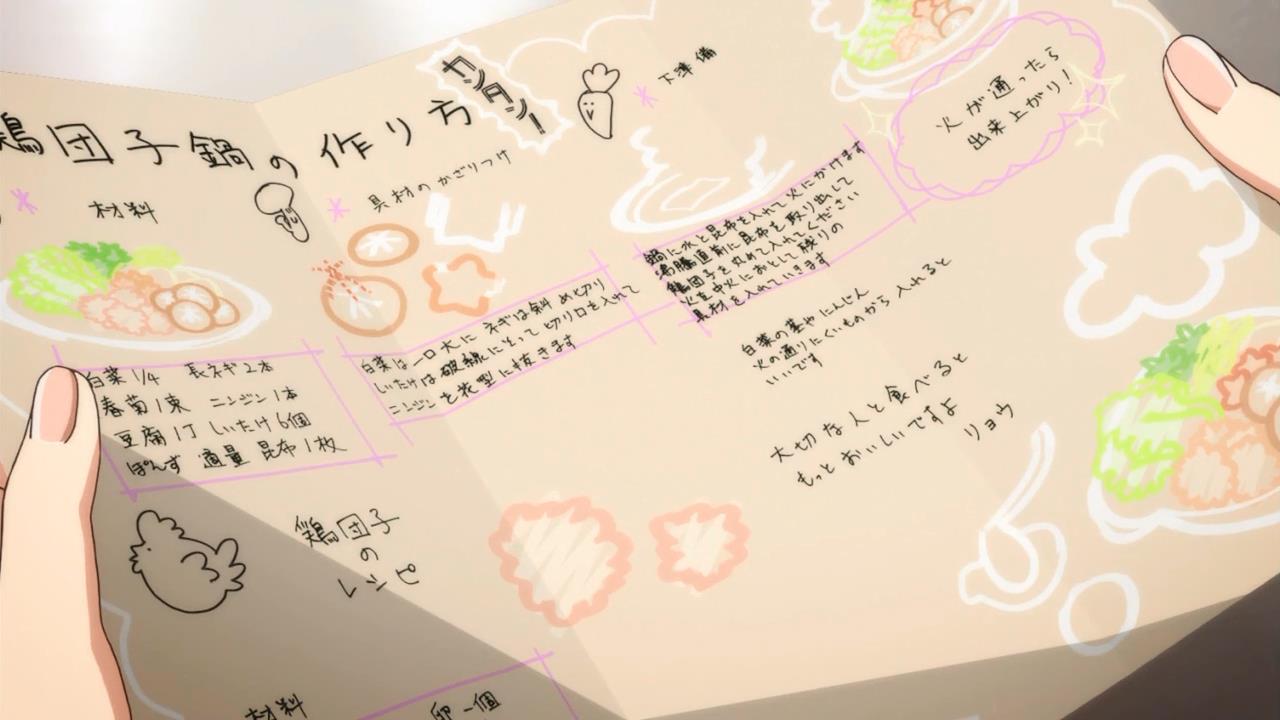 鶏団子鍋の作り方
カンタン!
材料
白菜1/4 長ネギ2本
春菊1束 ニンジン1本
豆腐1丁 しいたけ6個
ぽんず 適量 昆布1枚
具材のかざりつけ
白菜は一口大に ネギは斜め切り
しいたけは破線にとって切り口を入れて
ニンジンを花型に抜きます
下準備
鍋に水と昆布を入れて火にかけます
沸騰直前に昆布を取り出して
鶏団子を丸めて入れてください
火を中火におとして残りの
具材を入れていきます
白菜の茎やにんじん
火の通りにくいものから入れると
いいです
火が通ったら
出来上がり!
大切な人と食べると
もっとおいしいですよ
リョウ
鶏団子
の
レシピ
材料
卵一個